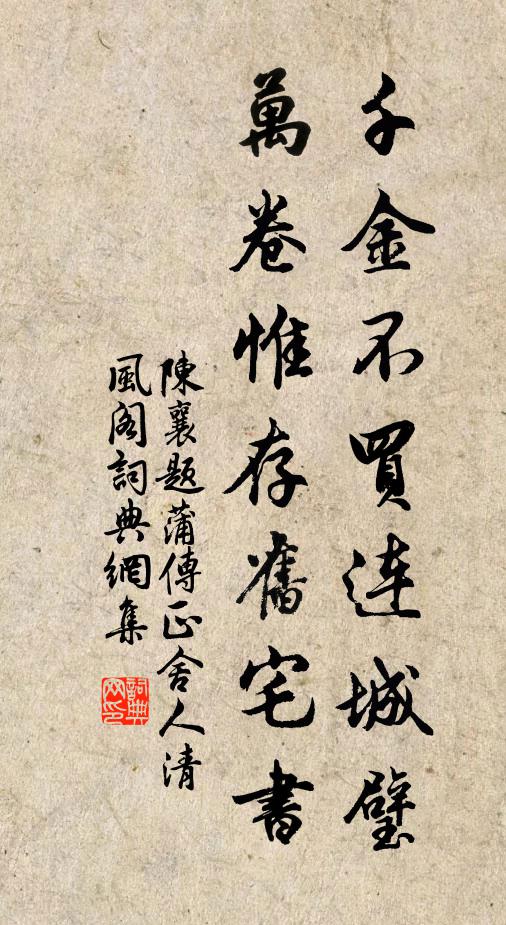 千金不買連城璧
萬卷惟存舊宅書
陳襄題蒲傳正舍人清
風閣詞典網集
詞典網印